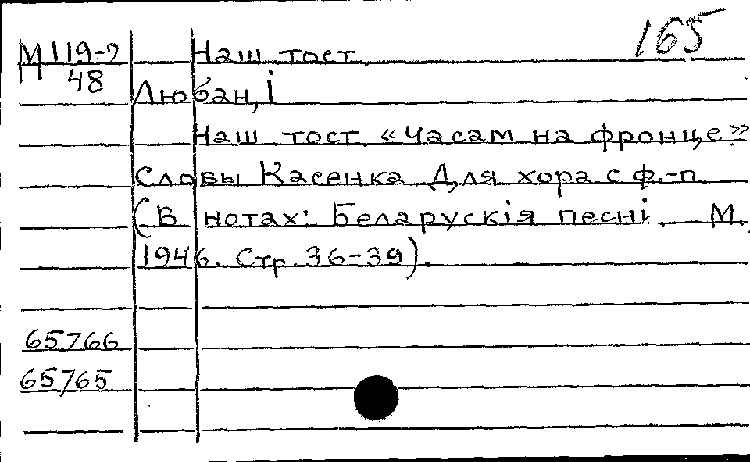 165
М119-2 Наш тост
48
Любан, І
Наш тост «Часам на фронце»
Словы Касенка Для хора с ф.-п.
(В нотах: Беларускія песні. М.,
1946. Стр. 36-39).
65766
65765